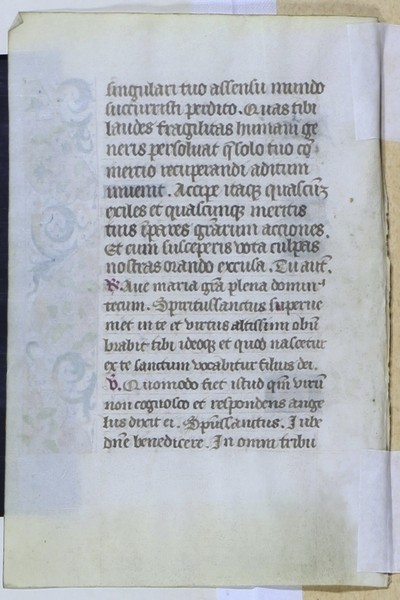 singulari tuo assensu mundo
succurristi perdito. Quas tibi
laudes fragilitas humani ge
neris persoluat q̃ solo tuo cõ
mercio recuperandi aditum
inuenit. Accipe itaqꝫ quascũqꝫ
exiles et quascunqꝫ meritis
tuis ĩpares gr̃arum acciones.
Et cum susceperis vota culpas
nostras orando excusa. Tu aut̃.
R. Aue maria gr̃a plena domin'
tecum. Spiritussanctus superue
niet in te et virtus altissimi obũ
brabit tibi ideoqꝫ et quod nascetur
ex te sanctum vocabitur filius dei.
V. Quomodo fiet istud qm̃ virũ
non cognosco et respondens ange
lus dixit ei. Spũssanctus. Iube
dñe benedicere. In omni tribu